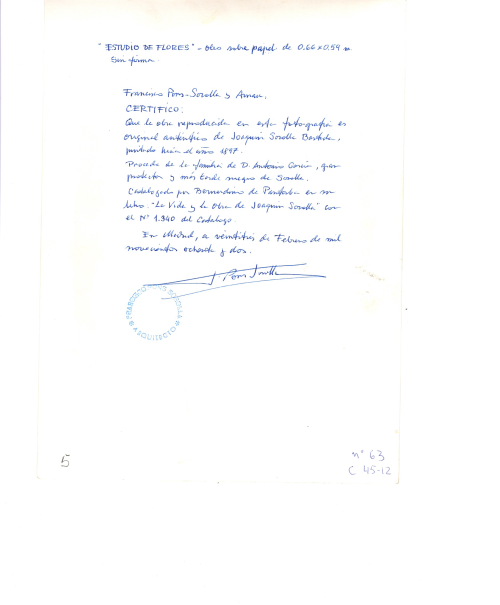 "ESTUDIO DE FLORES" - oleo sobre papel de 0.66 x 0.59 m.
Sin firma.
Francisco Pons-Sorolla y Arnau,
CERTIFICO:
Que la obra reproducida en esta fotografía es
original auténtico de Joaquín Sorolla Bastida,
pintado hacia el año 1897.
Procede de la familia de D. Antonio García, gran
protector y más tarde suegro de Sorolla.
Catalogada por Bernardino de Pantorba en su
libro "La Vida y la Obra de Joaquín Sorolla" con
el Nº 1.340 del Catálogo.
En Madrid, a veintitrés de Febrero de mil
novecientos ochenta y dos.
F. Pons Sorolla
FRANCISCO PONS SOROLLA
ARQUITECTO
5
nº 63
C 45-12